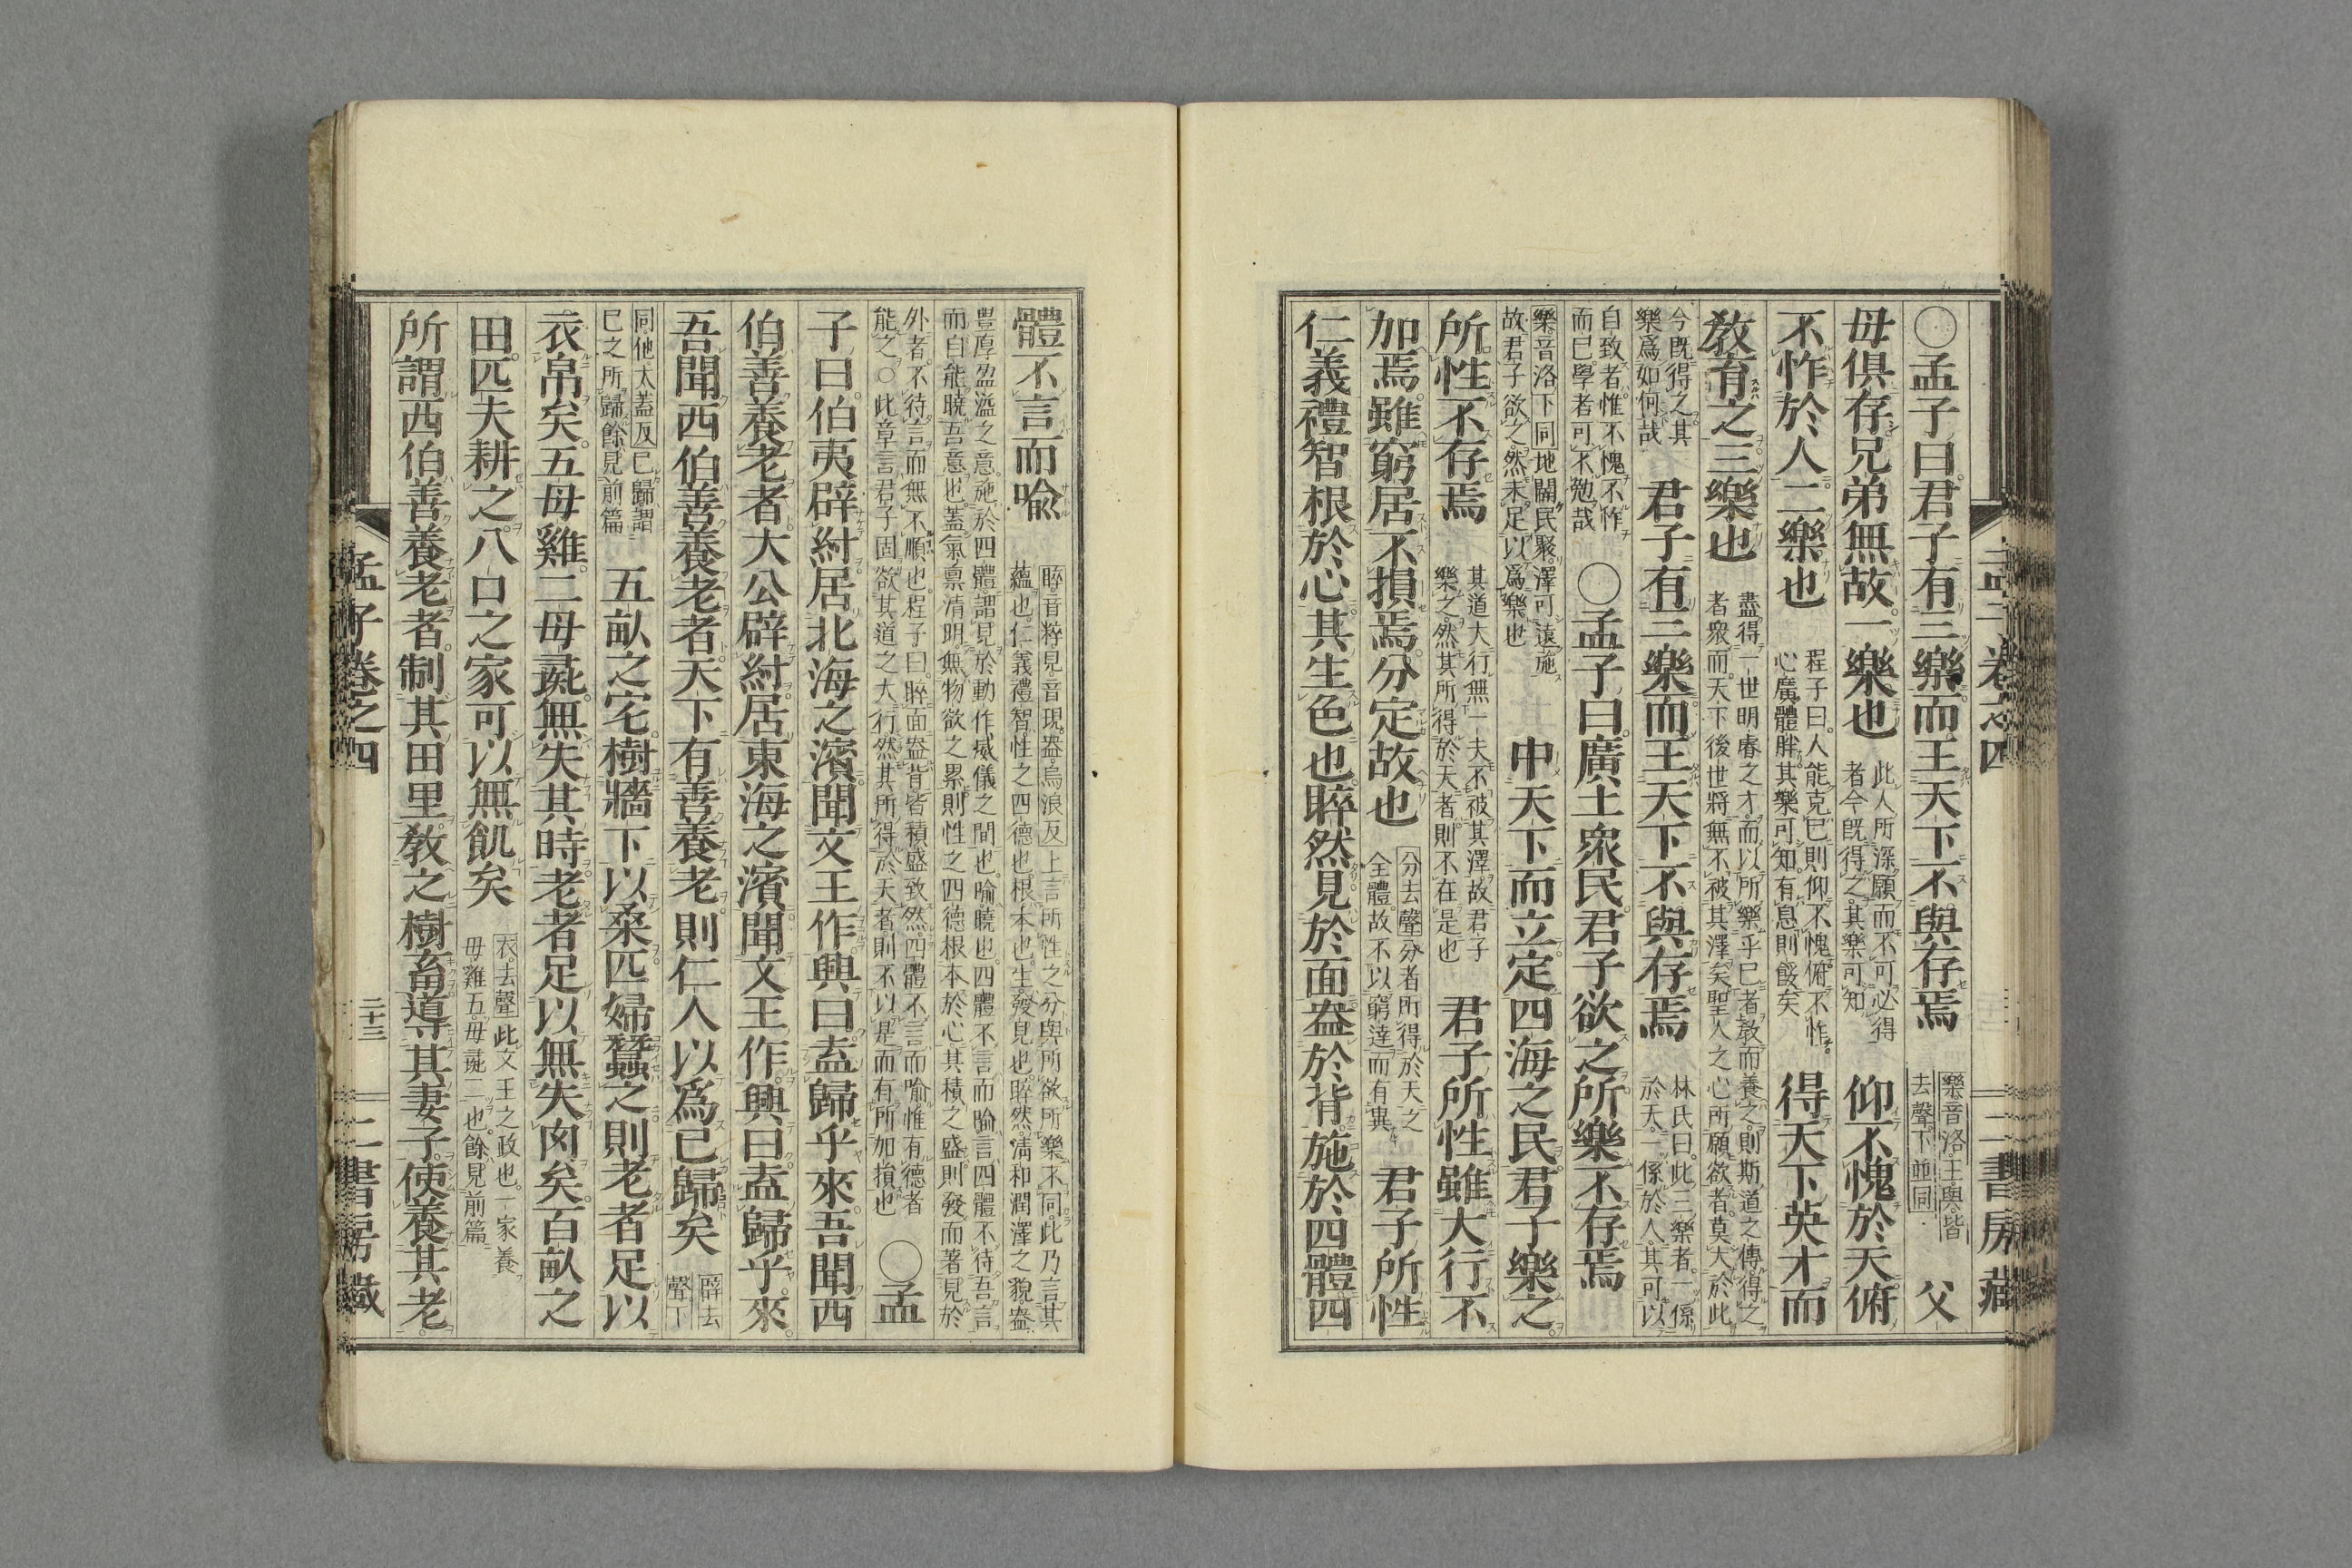 孟子卷之四 二書房藏
〇孟子曰君子有三樂而王天下不與存焉 樂音洛王與皆去聲下並同 父
母俱存兄弟無故一樂也 此人所深願而不可必得者今既得之其樂可知 仰不愧於天俯
不怍於人二樂也 程子曰人能克己則仰不愧俯不怍心廣體胖其樂可知有息則餒矣 得天下英才而
敎育之三樂也 盡得一世明睿之才而以所樂乎己者敎而養之則斯道之傳得之者衆而天下後世將無不被其澤矣聖人之心所願欲者莫大於此
今既得之其樂爲如何哉 君子有三樂而王天下不與存焉 林氏曰此三樂者一係於天一係於人其可以
自致者惟不愧不怍而已學者可不勉哉 〇孟子曰廣土衆民君子欲之所樂不存焉
樂音洛下同地闢民聚澤可遠施故君子欲之然未足以爲樂也 中天下而立定四海之民君子樂之
所性不存焉 其道大行無一夫不被其澤故君子樂之然其所得於天者則不在是也 君子所性雖大行不
加焉雖窮居不損焉分定故也 分去聲分者所得於天之全體故不以窮達而有異 君子所性
仁義禮智根於心其生色也睟然見於面盎於背施於四體四
體不言而喩 睟音粹見音現盎烏浪反上言所性之分與所欲所樂不同此乃言其蘊也仁義禮智性之四德也根本也生發見也睟然淸和潤澤之貌盎
豐厚盈溢之意施於四體謂見於動作威儀之間也喩曉也四體不言而喩言四體不待吾言而自能曉吾意也蓋氣稟淸明無物欲之累則性之四德根本於心其積之盛則發而著見於
外者不待言而無不順也程子曰睟面盎背皆積盛致然四體不言而喩惟有德者能之〇此章言君子固欲其道之大行然其所得於天者則不以是而有所加損也 〇孟
子曰伯夷辟紂居北海之濱聞文王作興曰盍歸乎來吾聞西
伯善養老者大公辟紂居東海之濱聞文王作興曰盍歸乎來
吾聞西伯善養老者天下有善養老則仁人以爲己歸矣 辟去聲下
同他太蓋反己歸謂己之所歸餘見前篇 五畝之宅樹牆下以桑匹婦蠶之則老者足以
衣帛矣五母雞二母彘無失其時老者足以無失肉矣百畝之
田匹夫耕之八口之家可以無飢矣 衣去聲此文王之政也一家養母雞五母彘二也餘見前篇
所謂西伯善養老者制其田里敎之樹畜導其妻子使養其老
孟子卷之四 二十三 二書房藏